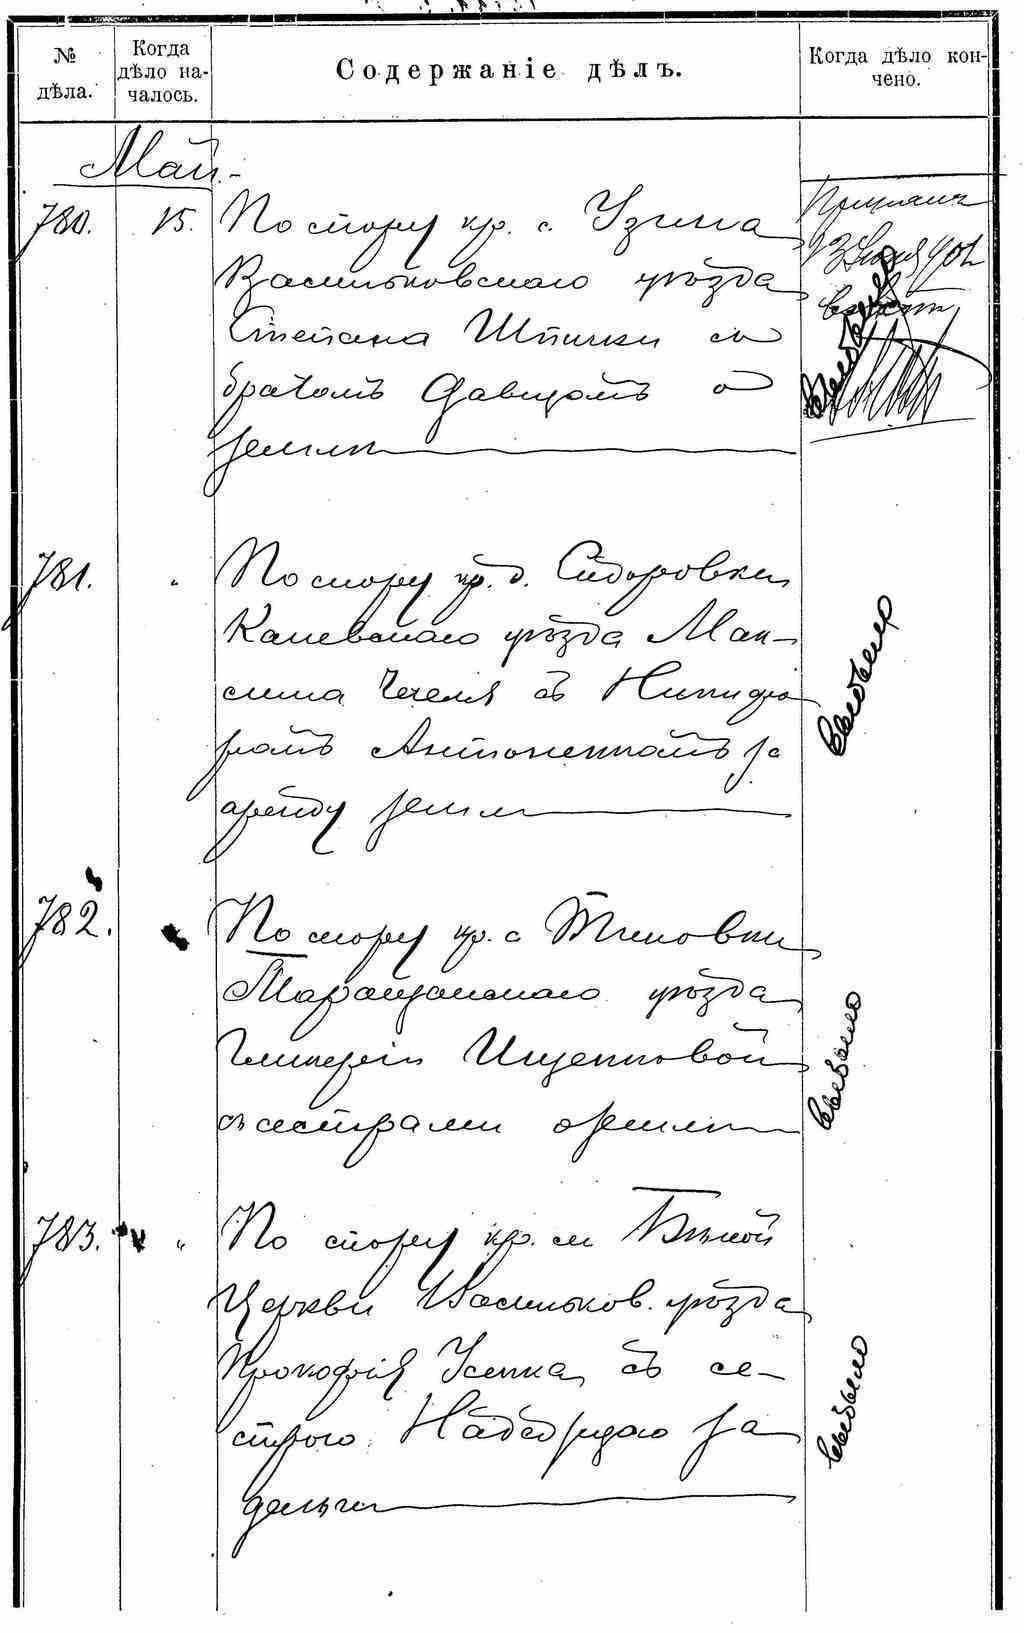 № дѣла.
Когда дѣло началось.
Содержаніе дѣлъ.
Когда дѣло кончено.
Май
780. 15. По спору кр. с. Узина
Васильковскаго уѣзда
Степана Шпички съ
братомъ Давидомъ о
землѣ
781. " По спору кр. д. Сидоровки
Каневскаго уѣзда Мак-
сима Чечеля съ Никифо
ромъ Антоненкомъ за
аренду земли
782. По спору кр. с
Таращанскаго уѣзда
Гликеріи Ищенковой
съ сестрами о землѣ
783. " По спору кр. м Бѣлой
Церкви Васильков. уѣзда
Прокофія Усенка съ се-
строю Надеждою за
деньги